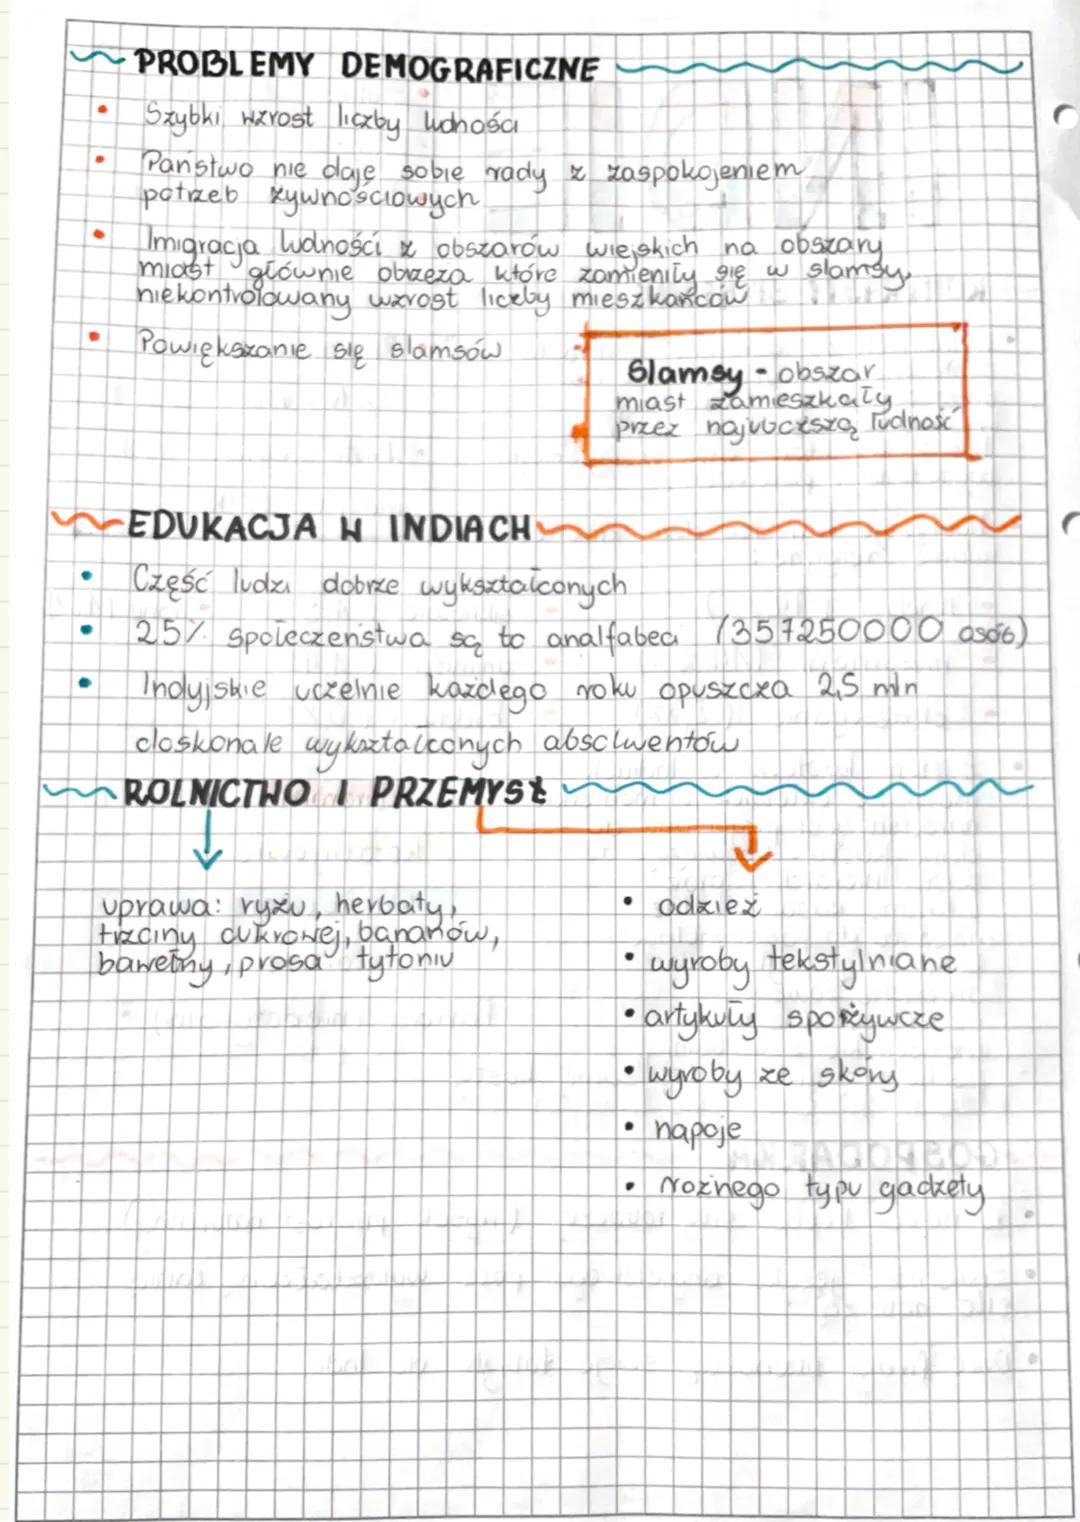 PROBLEMY DEMOGRAFICZNE
Szybki wzrost liczby ludności
Państwo nie daje sobie rady z zaspokojeniem
potrzeb żywnościowych
Imigracja ludności z obszarów wiejskich na obszary
miast głównie obrzeża które zamieniły się w slamsy,
niekontrolowany wzrost liczby mieszkańców
Powiększanie się slamsów
Slamsy - obszar
miast zamieszkały
przez najuboższą ludność
EDUKACJA W INDIACH
Część ludzi dobrze wykształconych
25% społeczeństwa są to analfabeci (357250000 osób)
Indyjskie uczelnie każdego roku opuszcza 2,5 mln
doskonale wykształconych absolwentów
ROLNICTWO I PRZEMYSŁ
uprawa: ryżu, herbaty,
trzciny cukrowej, bananów,
bawełny, prosa tytoniu
• odzież
• wyroby tekstylniane
• artykuły spożywcze
• wyroby ze skóry
• napoje
• rożnego typu gadżety